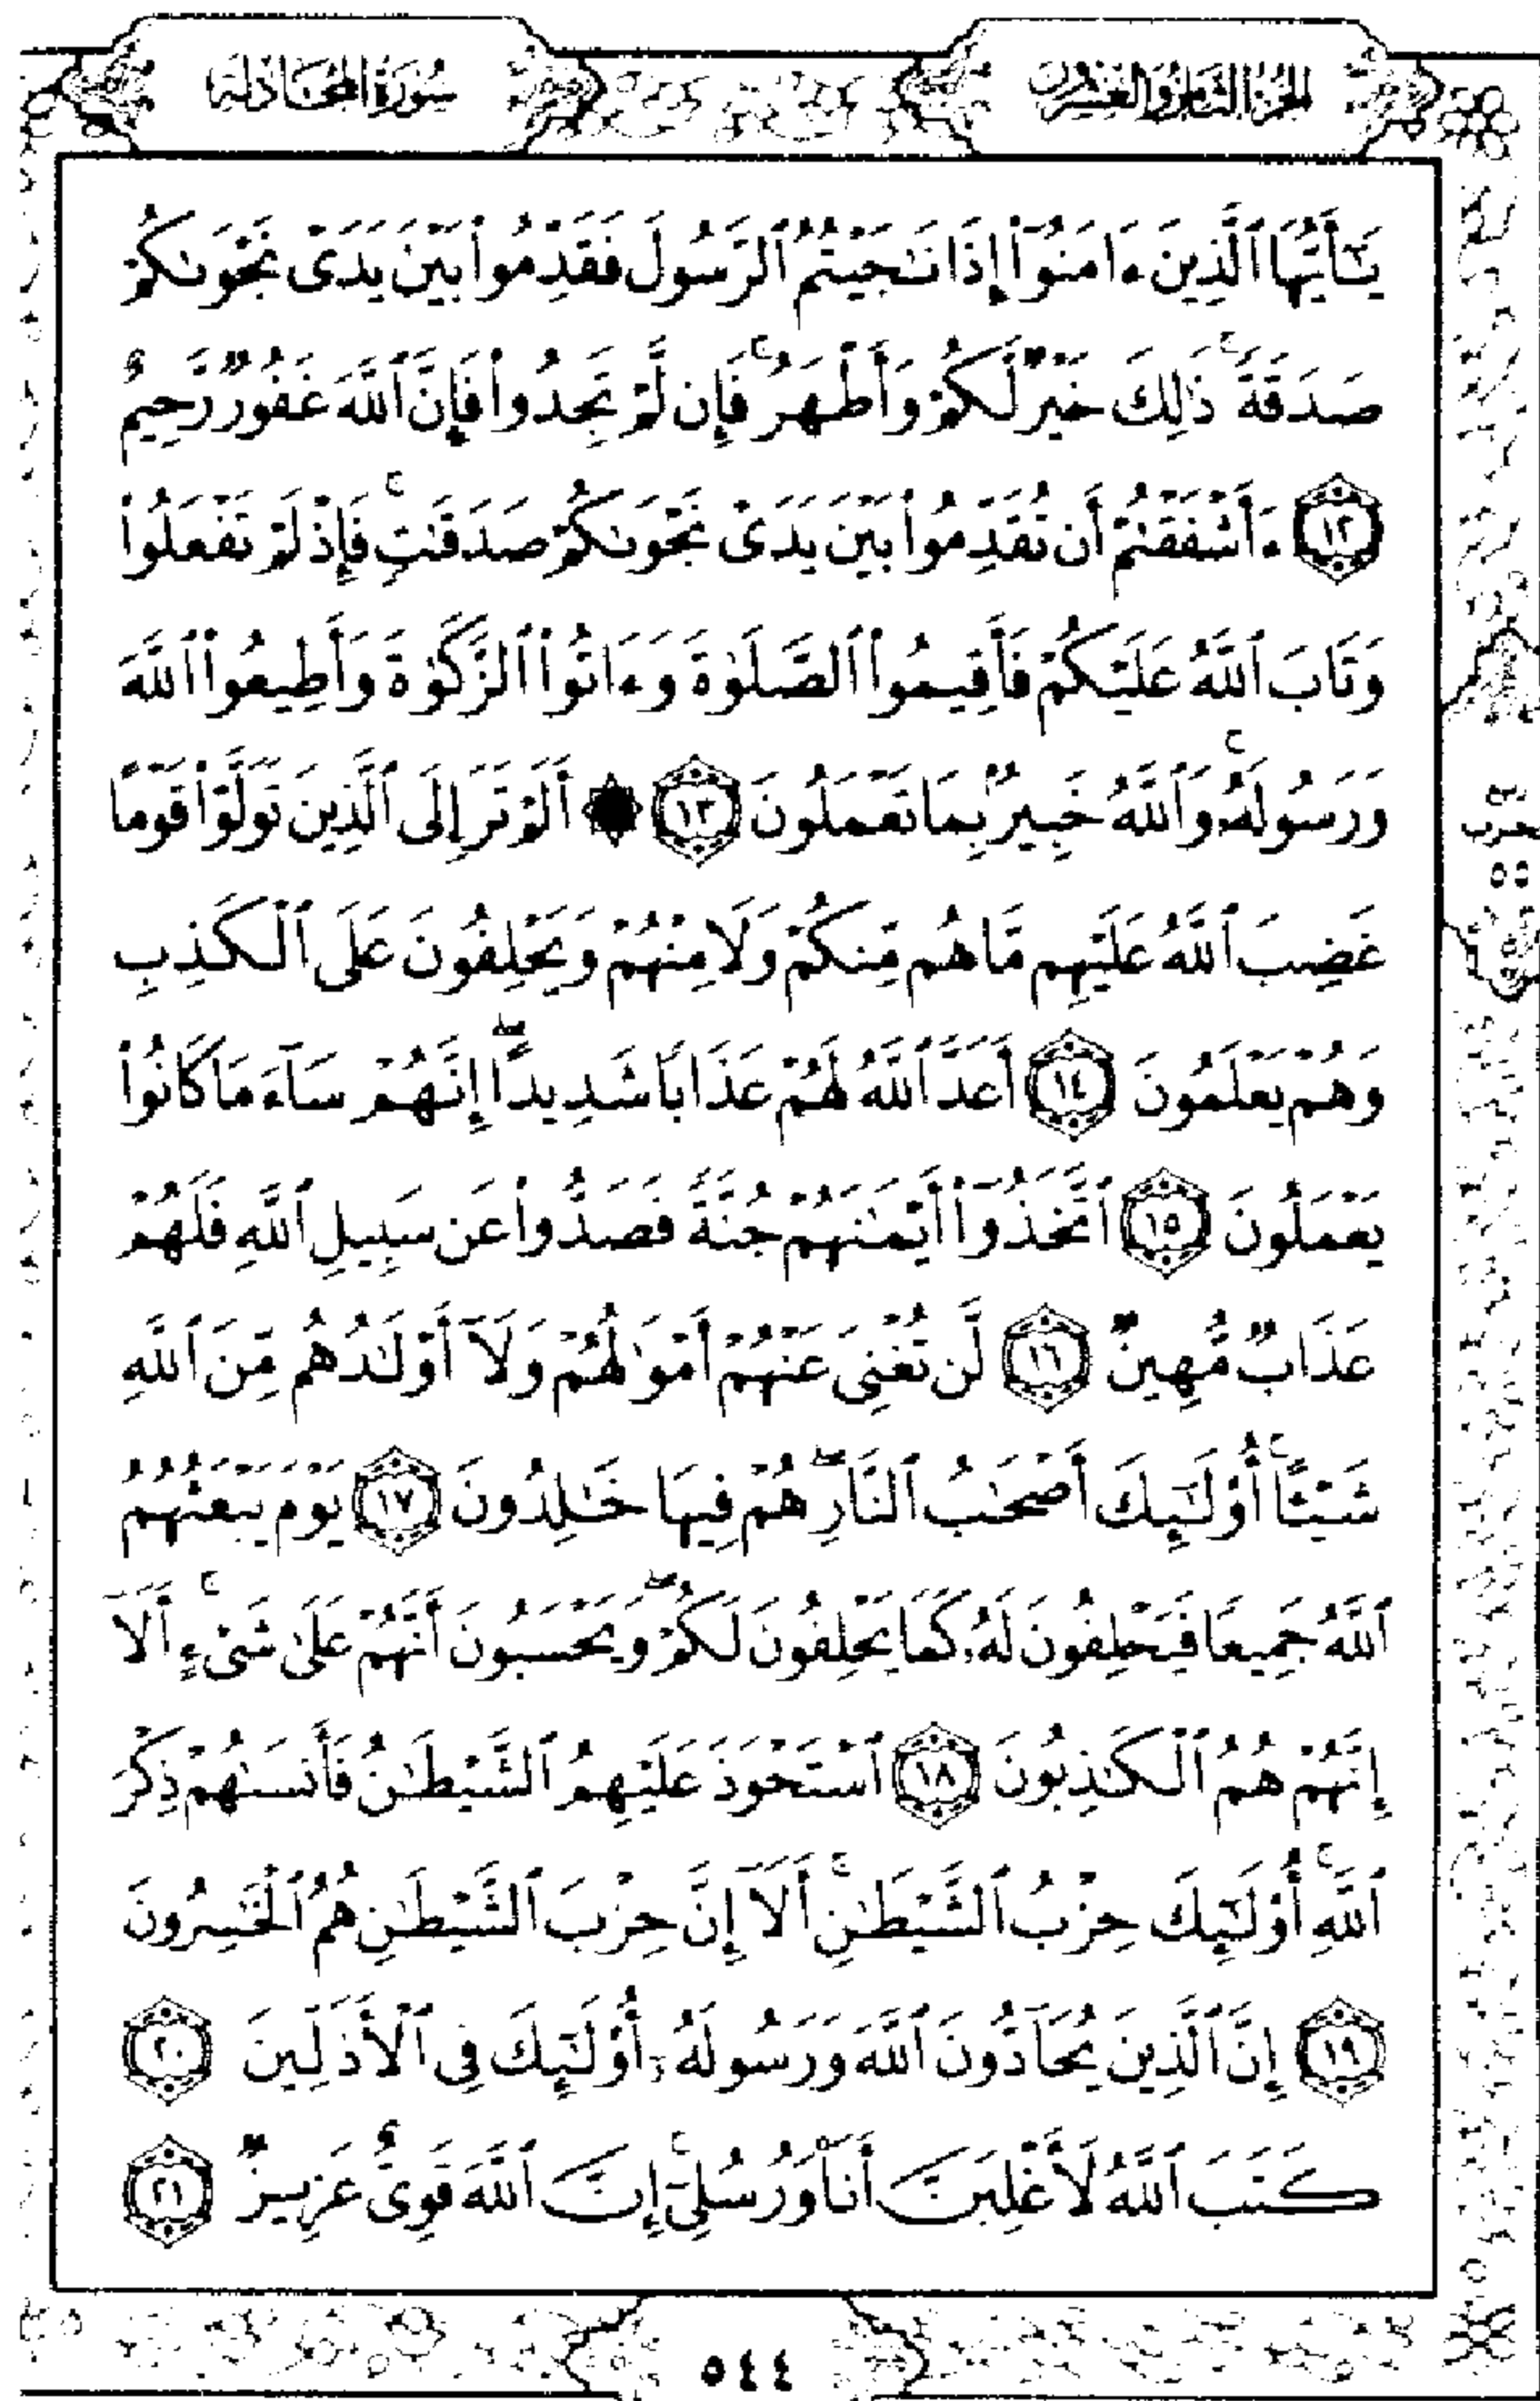 الجزء الثامن والعشرون
سورة المجادلة
يَـٰٓأَيُّهَا ٱلَّذِينَ ءَامَنُوٓا۟ إِذَا نَـٰجَيْتُمُ ٱلرَّسُولَ فَقَدِّمُوا۟ بَيْنَ يَدَىْ نَجْوَىٰكُمْ
صَدَقَةً ۚ ذَٰلِكَ خَيْرٌ لَّكُمْ وَأَطْهَرُ ۚ فَإِن لَّمْ تَجِدُوا۟ فَإِنَّ ٱللَّهَ غَفُورٌ رَّحِيمٌ
١٢ ءَأَشْفَقْتُمْ أَن تُقَدِّمُوا۟ بَيْنَ يَدَىْ نَجْوَىٰكُمْ صَدَقَـٰتٍ ۚ فَإِذْ لَمْ تَفْعَلُوا۟
وَتَابَ ٱللَّهُ عَلَيْكُمْ فَأَقِيمُوا۟ ٱلصَّلَوٰةَ وَءَاتُوا۟ ٱلزَّكَوٰةَ وَأَطِيعُوا۟ ٱللَّهَ
وَرَسُولَهُۥ ۚ وَٱللَّهُ خَبِيرٌۢ بِمَا تَعْمَلُونَ ١٣ ۞ أَلَمْ تَرَ إِلَى ٱلَّذِينَ تَوَلَّوْا۟ قَوْمًا
غَضِبَ ٱللَّهُ عَلَيْهِم مَّا هُم مِّنكُمْ وَلَا مِنْهُمْ وَيَحْلِفُونَ عَلَى ٱلْكَذِبِ
وَهُمْ يَعْلَمُونَ ١٤ أَعَدَّ ٱللَّهُ لَهُمْ عَذَابًا شَدِيدًا ۖ إِنَّهُمْ سَآءَ مَا كَانُوا۟
يَعْمَلُونَ ١٥ ٱتَّخَذُوٓا۟ أَيْمَـٰنَهُمْ جُنَّةً فَصَدُّوا۟ عَن سَبِيلِ ٱللَّهِ فَلَهُمْ
عَذَابٌ مُّهِينٌ ١٦ لَّن تُغْنِىَ عَنْهُمْ أَمْوَٰلُهُمْ وَلَآ أَوْلَـٰدُهُم مِّنَ ٱللَّهِ
شَيْـًٔا ۚ أُو۟لَـٰٓئِكَ أَصْحَـٰبُ ٱلنَّارِ ۖ هُمْ فِيهَا خَـٰلِدُونَ ١٧ يَوْمَ يَبْعَثُهُمُ
ٱللَّهُ جَمِيعًا فَيَحْلِفُونَ لَهُۥ كَمَا يَحْلِفُونَ لَكُمْ ۖ وَيَحْسَبُونَ أَنَّهُمْ عَلَىٰ شَىْءٍ ۚ أَلَآ
إِنَّهُمْ هُمُ ٱلْكَـٰذِبُونَ ١٨ ٱسْتَحْوَذَ عَلَيْهِمُ ٱلشَّيْطَـٰنُ فَأَنسَىٰهُمْ ذِكْرَ
ٱللَّهِ ۚ أُو۟لَـٰٓئِكَ حِزْبُ ٱلشَّيْطَـٰنِ ۚ أَلَآ إِنَّ حِزْبَ ٱلشَّيْطَـٰنِ هُمُ ٱلْخَـٰسِرُونَ
١٩ إِنَّ ٱلَّذِينَ يُحَآدُّونَ ٱللَّهَ وَرَسُولَهُۥٓ أُو۟لَـٰٓئِكَ فِى ٱلْأَذَلِّينَ ٢٠
كَتَبَ ٱللَّهُ لَأَغْلِبَنَّ أَنَا۠ وَرُسُلِىٓ ۚ إِنَّ ٱللَّهَ قَوِىٌّ عَزِيزٌ ٢١
حزب
٥٥
٥٤٤